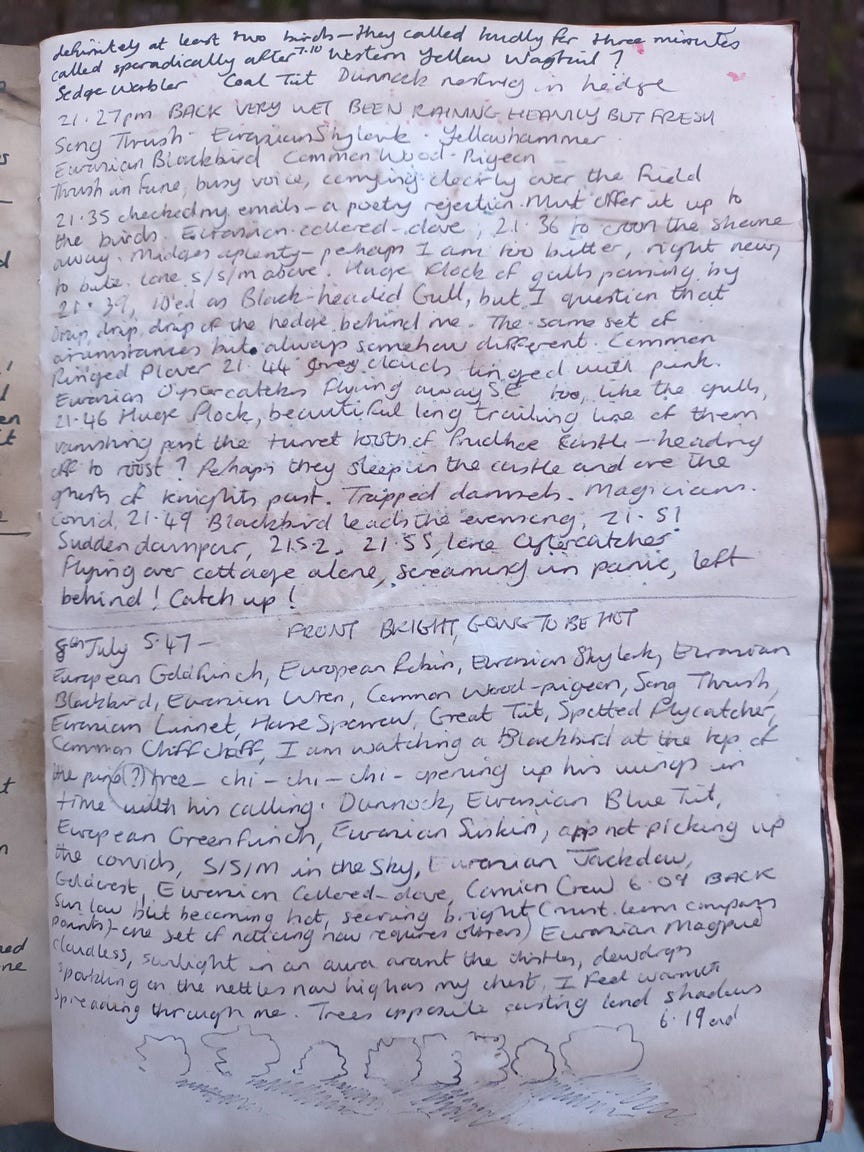 definitely at least two birds – they called loudly for three minutes
called sporadically after 7.10 Western Yellow Wagtail?
Sedge Warbler Coal Tit Dunnock nesting in hedge
21.27pm BACK VERY WET BEEN RAINING HEAVILY BUT FRESH
Song Thrush - Eurasian Skylark . Yellowhammer
Eurasian Blackbird Common Wood-Pigeon
Thrush in fine, busy voice, carrying clearly over the field
21.35 checked my emails – a poetry rejection. Must offer it up to
the birds. Eurasian collered-dove, 21.36 to croon the shame
away. Midges aplenty – perhaps I am too bitter, right now,
to bite. Lone S/S/M above. Huge flock of gulls passing by
21.39, ID'ed as Black-headed Gull, but I question that
Drip, drip, drip of the hedge behind me. The same set of
circumstances but always somehow different. Common
Ringed Plover 21.44 Grey clouds tinged with pink.
Eurasian Oystercatcher flying away SE too, like the gulls,
21.46 Huge flock, beautiful long trailing line of them
vanishing past the turret tooth of Prudhoe Castle – heading
off to roost? Perhaps they sleep in the castle and are the
ghosts of knights past. Trapped damsels. Magicians.
Corvid, 21.49 Blackbird leads the evensong, 21.51
Sudden downpour, 21.52. 21.55, lone Oystercatcher
flying over cottage alone, screaming in panic, left
behind! Catch up!
8th July 5.47 – FRONT BRIGHT, GOING TO BE HOT
European Goldfinch, European Robin, Eurasian Skylark, Eurasian
Blackbird, Eurasian Wren, Common Wood-pigeon, Song Thrush,
Eurasian Linnet, House Sparrow, Great Tit, Spotted Flycatcher,
Common Chiffchaff, I am watching a Blackbird at the top of
the pine (?) tree – chi – chi – chi – opening up his wings in
time with his calling. Dunnock, Eurasian Blue Tit,
European Greenfinch, Eurasian Siskin, app not picking up
the corvids, S/S/M in the sky, Eurasian Jackdaw,
Goldcrest, Eurasian Collered-dove, Carrion Crow 6.09 BACK
Sun low but becoming hot, searing bright (must learn compass
points) – one set of noticing now requires others) Eurasian Magpie
cloudless, sunlight in an aura arount the thistles, dewdrops
sparkling on the nettles now high as my chest, I feel warmth
spreading through me. Trees opposite casting long shadows
6.19 end